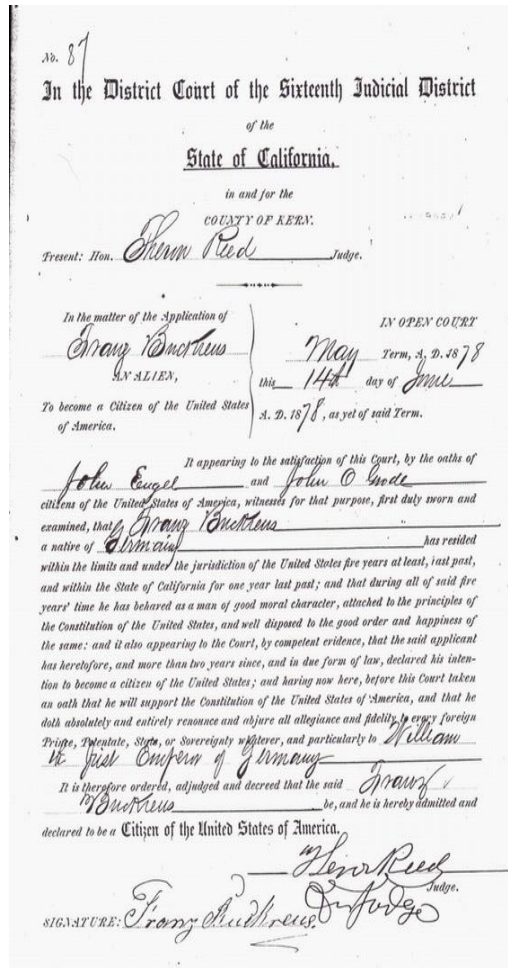 No. 87
In the District Court of the Sixteenth Judicial District
of the
State of California,
in and for the
COUNTY OF KERN.
Present: Hon. Theron Reed Judge.
In the matter of the Application of
Franz Buckreus
AN ALIEN,
To become a Citizen of the United States
of America.
IN OPEN COURT
May Term, A. D. 1878
this 14th day of June
A. D. 1878, as yet of said Term.
It appearing to the satisfaction of this Court, by the oaths of
John Engel and John O Grode
citizens of the United States of America, witnesses for that purpose, first duly sworn and
examined, that Franz Buckreus
a native of Germany has resided
within the limits and under the jurisdiction of the United States five years at least, last past,
and within the State of California for one year last past; and that during all of said five
years' time he has behaved as a man of good moral character, attached to the principles of
the Constitution of the United States, and well disposed to the good order and happiness of
the same: and it also appearing to the Court, by competent evidence, that the said applicant
has heretofore, and more than two years since, and in due form of law, declared his inten-
tion to become a citizen of the United States; and having now here, before this Court taken
an oath that he will support the Constitution of the United States of America, and that he
doth absolutely and entirely renounce and abjure all allegiance and fidelity to every foreign
Prince, Potentate, State, or Sovereignty whatever, and particularly to William
the first Emperor of Germany
It is therefore ordered, adjudged and decreed that the said Franz
Buckreus be, and he is hereby admitted and
declared to be a Citizen of the United States of America.
Theron Reed
Judge.
Dis Judge
SIGNATURE: Franz Buckreus.